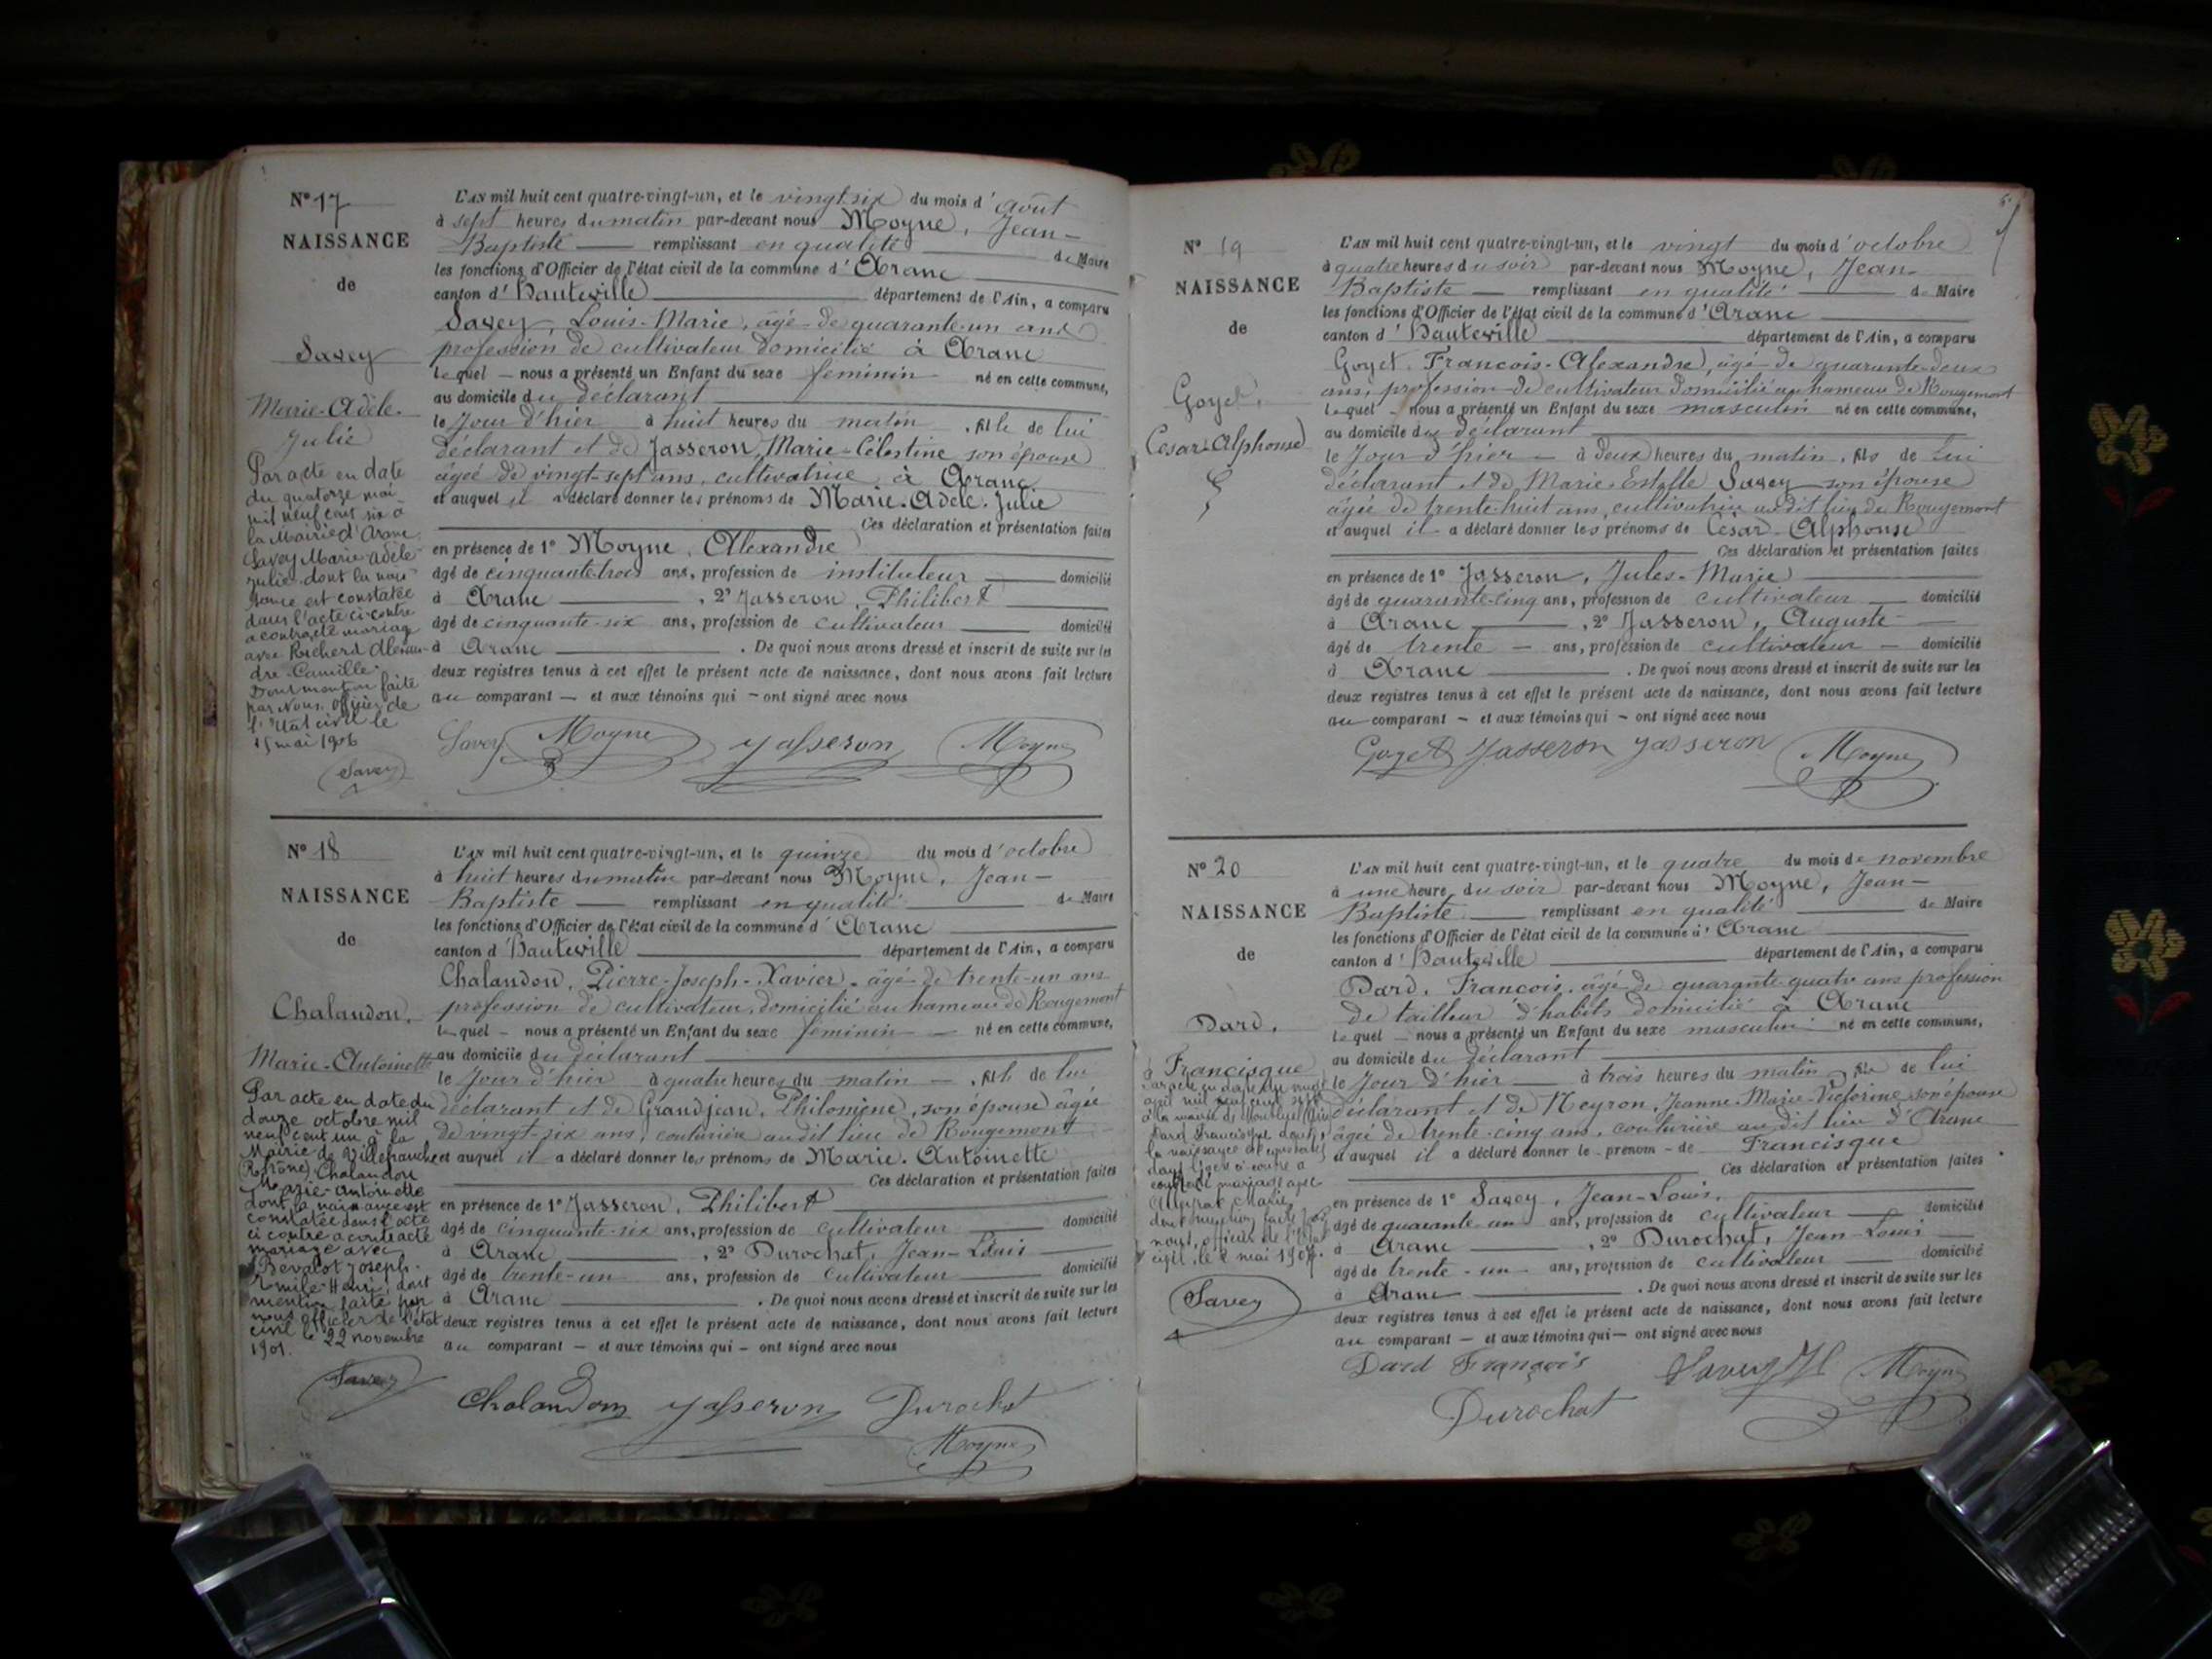 N° 17
NAISSANCE
de
Savey
Marie-Adèle-
Julie
Par acte en date
du quatorze mai
mil neuf cent six à
la Mairie d'Aranc
Savey Marie Adèle
Julie dont la nais-
sance est constatée
dans l'acte ci-contre
a contracté mariage
avec Richerd Alexan-
dre-Camille.
Dont mention faite
par Nous, officier de
l'Etat civil le
15 mai 1906
Savey
L'AN mil huit cent quatre-vingt-un, et le vingt six du mois d'août
à sept heures du matin par-devant nous Moyne, Jean-
Baptiste remplissant en qualité de Maire
les fonctions d'Officier de l'état civil de la commune d'Aranc
canton d'Hauteville département de l'Ain, a comparu
Savey, Louis-Marie, âgé de quarante-un ans
profession de cultivateur domicilié à Aranc
lequel nous a présenté un Enfant du sexe féminin né en cette commune,
au domicile du déclarant
le Jour d'hier à huit heures du matin, fille de lui
déclarant et de Jasseron, Marie-Célestine son épouse
âgée de vingt-sept ans, cultivatrice à Aranc
et auquel il a déclaré donner les prénoms de Marie-Adèle-Julie
Ces déclaration et présentation faites
en présence de 1° Moyne, Alexandre
âgé de cinquante-trois ans, profession de instituteur domicilié
à Aranc, 2° Jasseron, Philibert
âgé de cinquante-six ans, profession de cultivateur domicilié
à Aranc. De quoi nous avons dressé et inscrit de suite sur les
deux registres tenus à cet effet le présent acte de naissance, dont nous avons fait lecture
au comparant — et aux témoins qui — ont signé avec nous
Savey Moyne Jasseron Moyne
N° 18
NAISSANCE
de
Chalandon,
Marie-Antoinette
Par acte en date du
douze octobre mil
neuf cent un à la
Mairie de Villefranche
(Rhône) Chalandon
Marie-Antoinette
dont la naissance est
constatée dans l'acte
ci contre a contracté
mariage avec
Devalot Joseph-
Emile-Henri, dont
mention faite par
nous officier de l'état
civil le 22 novembre
1901.
Savey
L'AN mil huit cent quatre-vingt-un, et le quinze du mois d'octobre
à huit heures du matin par-devant nous Moyne, Jean-
Baptiste remplissant en qualité de Maire
les fonctions d'Officier de l'état civil de la commune d'Aranc
canton d'Hauteville département de l'Ain, a comparu
Chalandon, Pierre-Joseph-Xavier, âgé de trente-un ans
profession de cultivateur, domicilié au hameau de Rougemont
lequel — nous a présenté un Enfant du sexe féminin né en cette commune,
au domicile du déclarant
le Jour d'hier à quatre heures du matin, fille de lui
déclarant et de Grandjean, Philomène, son épouse âgée
de vingt-six ans, couturière audit lieu de Rougemont
et auquel il a déclaré donner les prénoms de Marie-Antoinette
Ces déclaration et présentation faites
en présence de 1° Jasseron, Philibert
âgé de cinquante-six ans, profession de cultivateur domicilié
à Aranc, 2° Durochat, Jean-Louis
âgé de trente-un ans, profession de cultivateur domicilié
à Aranc. De quoi nous avons dressé et inscrit de suite sur les
deux registres tenus à cet effet le présent acte de naissance, dont nous avons fait lecture
au comparant — et aux témoins qui — ont signé avec nous
Chalandon Jasseron Durochat
Moyne
N° 19
NAISSANCE
de
Goyet,
César-Alphonse
L'AN mil huit cent quatre-vingt-un, et le vingt du mois d'octobre
à quatre heures du soir par-devant nous Moyne, Jean-
Baptiste remplissant en qualité de Maire
les fonctions d'Officier de l'état civil de la commune d'Aranc
canton d'Hauteville département de l'Ain, a comparu
Goyet, François-Alexandre, âgé de quarante-deux
ans, profession de cultivateur domicilié au hameau de Rougemont
lequel — nous a présenté un Enfant du sexe masculin né en cette commune,
au domicile du déclarant
le Jour d'hier à deux heures du matin, fils de lui
déclarant et de Marie-Estelle Savey son épouse
âgée de trente-huit ans, cultivatrice audit lieu de Rougemont
et auquel il a déclaré donner les prénoms de César-Alphonse
Ces déclaration et présentation faites
en présence de 1° Jasseron, Jules-Marie
âgé de quarante-cinq ans, profession de cultivateur domicilié
à Aranc, 2° Jasseron, Auguste
âgé de trente ans, profession de cultivateur domicilié
à Aranc. De quoi nous avons dressé et inscrit de suite sur les
deux registres tenus à cet effet le présent acte de naissance, dont nous avons fait lecture
au comparant — et aux témoins qui — ont signé avec nous
Goyet Jasseron Jasseron Moyne
N° 20
NAISSANCE
de
Dard,
Francisque
Par acte en date du vingt
avril mil neuf cent sept
à la mairie de
Dard Francisque dont
la naissance est constatée
dans l'acte ci-contre a
contracté mariage avec
Marie,
dont mention faite par
nous, officier de l'état
civil, le 2 mai 1907.
Savey
L'AN mil huit cent quatre-vingt-un, et le quatre du mois de novembre
à une heure du soir par-devant nous Moyne, Jean-
Baptiste remplissant en qualité de Maire
les fonctions d'Officier de l'état civil de la commune d'Aranc
canton d'Hauteville département de l'Ain, a comparu
Dard, François, âgé de quarante-quatre ans profession
de tailleur d'habits domicilié à Aranc
lequel — nous a présenté un Enfant du sexe masculin né en cette commune,
au domicile du déclarant
le Jour d'hier — à trois heures du matin, fils de lui
déclarant et de Neyron, Jeanne-Marie-Victorine, son épouse
âgée de trente-cinq ans, couturière audit lieu d'Aranc
et auquel il a déclaré donner le prénom de Francisque
Ces déclaration et présentation faites
en présence de 1° Savey, Jean-Louis,
âgé de quarante-un ans, profession de cultivateur domicilié
à Aranc, 2° Durochat, Jean-Louis
âgé de trente-un ans, profession de cultivateur domicilié
à Aranc. De quoi nous avons dressé et inscrit de suite sur les
deux registres tenus à cet effet le présent acte de naissance, dont nous avons fait lecture
au comparant — et aux témoins qui — ont signé avec nous
Dard François Savey JL Moyne
Durochat